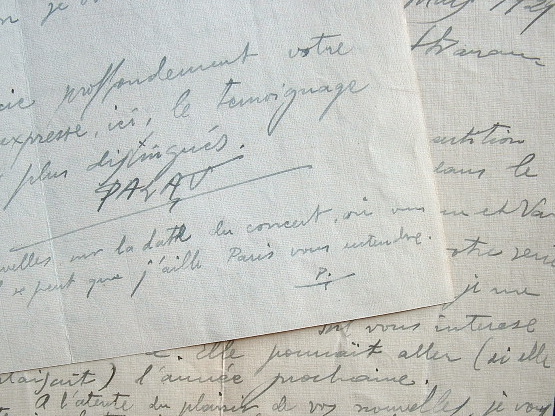 je
cie proffondement votre
expresse, ici, le temoignage
plus distingués.
PALAU
velles sur la date du concert, où vous
se peut que j'aille Paris vous entendre.
P.
dans le
et Va
otre
je
vous interese
elle pourrait aller (si elle
l'année prochaine.
A l'atente du plaisir de vos nouvelles, je vous